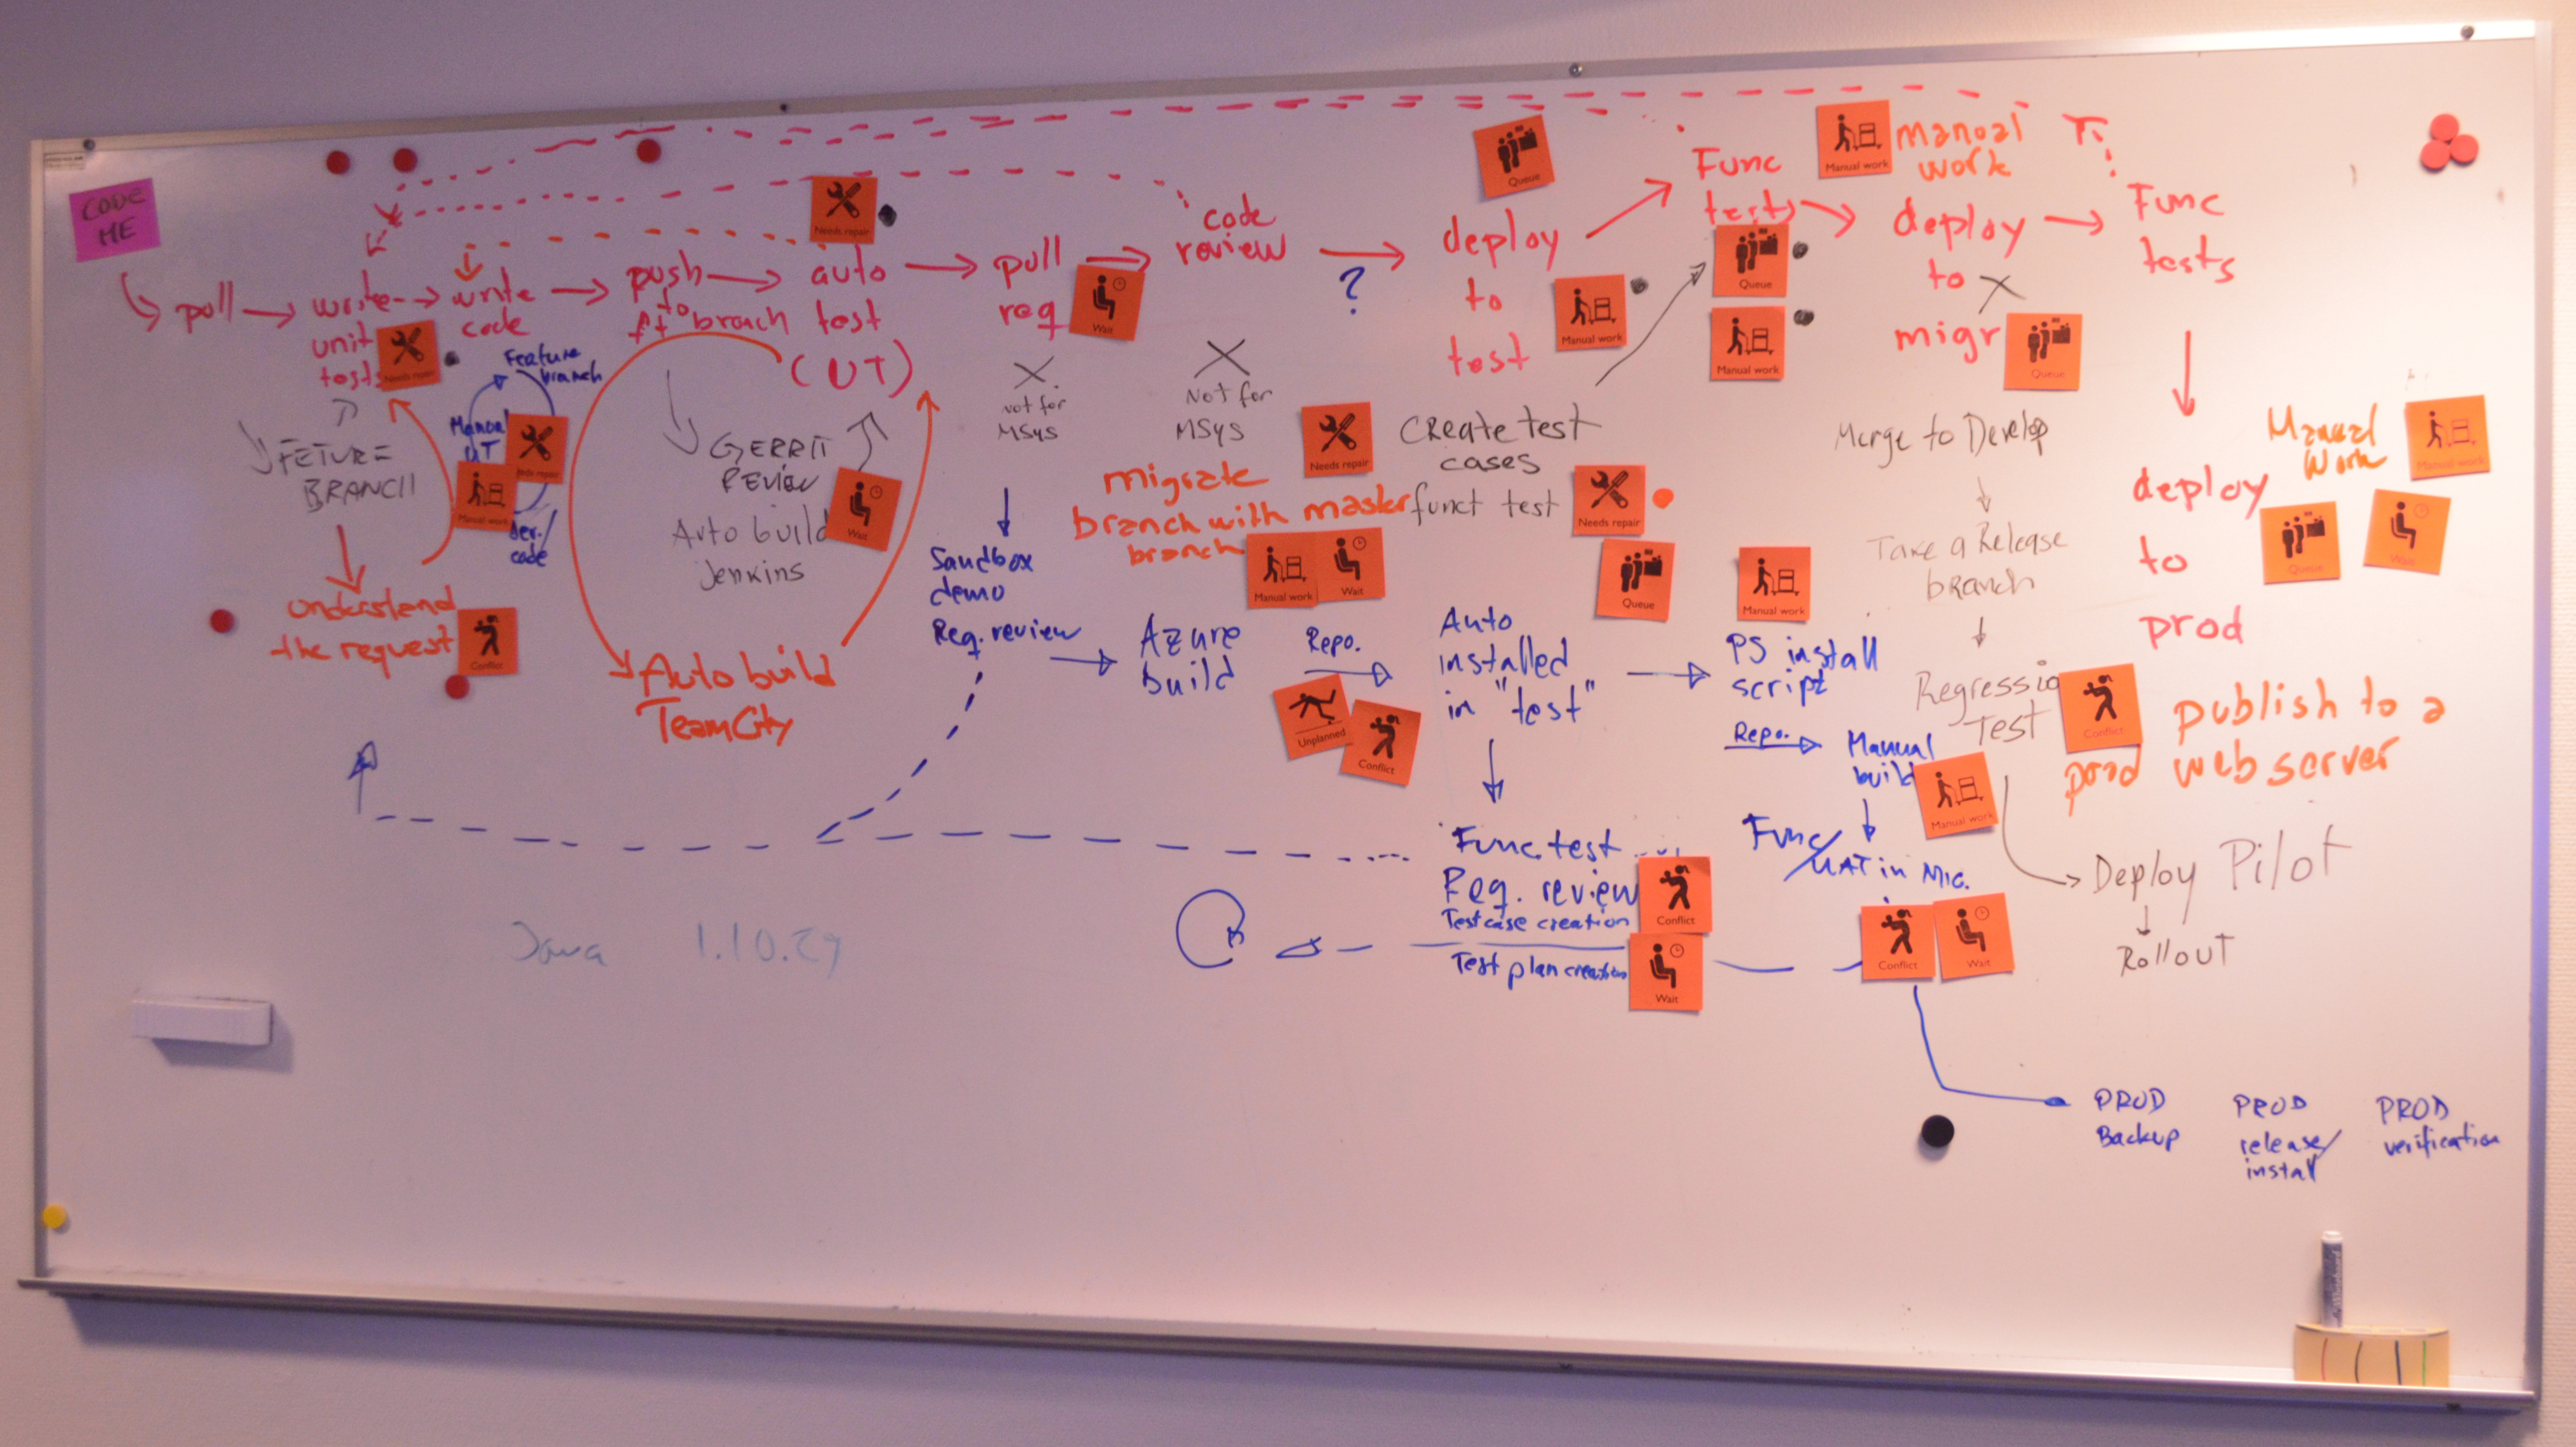 CODE
ME
pull
write
unit
tests
Needs repair
write
code
push
to
ft branch
auto
test
(UT)
Needs repair
pull
req
Wait
code
review
?
deploy
to
test
Queue
Manual work
Func
tests
Queue
Manual work
Manual work
manual
work
deploy
to
migr
Queue
Func
tests
FETURE
BRANCH
understand
the request
Conflict
Feature
branch
Manual
UT
Needs repair
Manual work
code
GERRIT
REVIEW
Auto build
Jenkins
Wait
Auto build
TeamCity
X
Not for
MSys
X
Not for
MSys
migrate
branch with master
branch
Needs repair
Manual work
Wait
Create test
cases
funct test
Needs repair
Queue
Sandbox
demo
Req. review
Azure
build
Repo.
Unplanned
Conflict
Auto
installed
in "test"
Manual work
PS install
script
Repo.
Manual
build
Manual work
Func. test
Req. review
Testcase creation
Test plan creation
Conflict
Wait
Func/
UAT in Mig.
Conflict
Wait
Merge to Develop
Take a Release
branch
Regressio
Test
Deploy Pilot
Rollout
deploy
to
prod
Manual
Work
Manual work
Queue
Wait
Conflict
publish to a
prod web server
Java 1.10.29
PROD
Backup
PROD
release/
install
PROD
verification